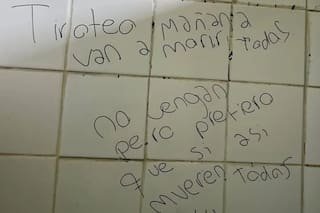 Tiroteo mañana
van a moriri todas
no vengan
pero prefiero
que si asi
mueren todas